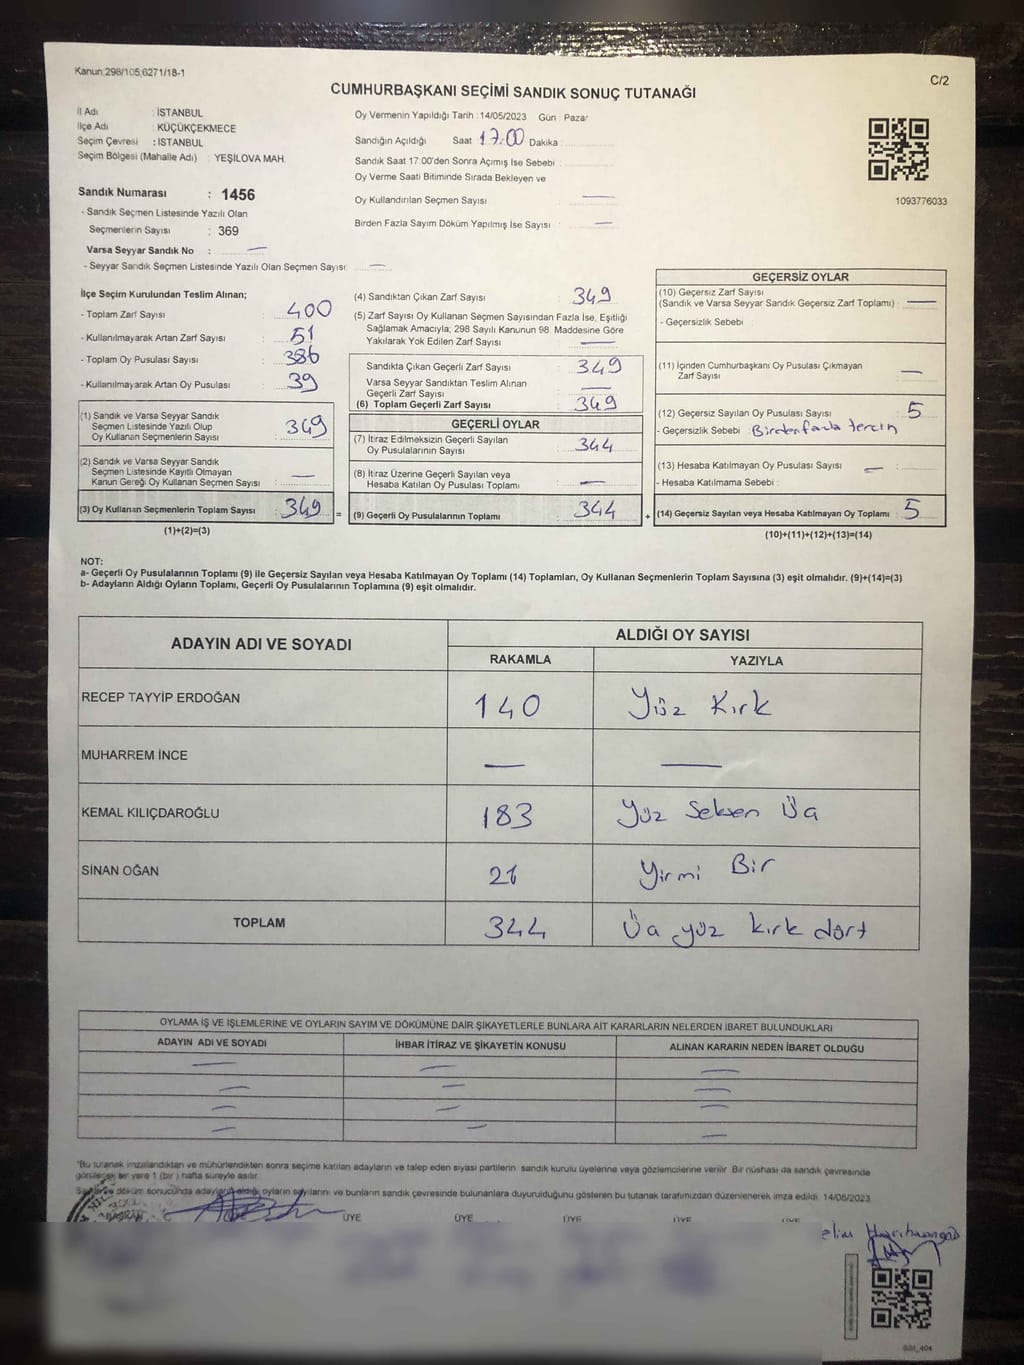 Kanun:298/105,6271/18-1
C/2
CUMHURBAŞKANI SEÇİMİ SANDIK SONUÇ TUTANAĞI
İl Adı : İSTANBUL
İlçe Adı : KÜÇÜKÇEKMECE
Seçim Çevresi : İSTANBUL
Seçim Bölgesi (Mahalle Adı) : YEŞİLOVA MAH.
Sandık Numarası : 1456
- Sandık Seçmen Listesinde Yazılı Olan
Seçmenlerin Sayısı : 369
Varsa Seyyar Sandık No : —
- Seyyar Sandık Seçmen Listesinde Yazılı Olan Seçmen Sayısı: —
Oy Vermenin Yapıldığı Tarih : 14/05/2023 Gün : Pazar
Sandığın Açıldığı Saat 17:00 Dakika :
Sandık Saat 17:00'den Sonra Açımış İse Sebebi :
Oy Verme Saati Bitiminde Sırada Bekleyen ve
Oy Kullandırılan Seçmen Sayısı —
Birden Fazla Sayım Döküm Yapılmış İse Sayısı : —
1093776033
İlçe Seçim Kurulundan Teslim Alınan;
- Toplam Zarf Sayısı : 400
- Kullanılmayarak Artan Zarf Sayısı : 51
- Toplam Oy Pusulası Sayısı : 386
- Kullanılmayarak Artan Oy Pusulası : 39
(1) Sandık ve Varsa Seyyar Sandık
Seçmen Listesinde Yazılı Olup
Oy Kullanan Seçmenlerin Sayısı : 349
(2) Sandık ve Varsa Seyyar Sandık
Seçmen Listesinde Kayıtlı Olmayan
Kanun Gereği Oy Kullanan Seçmen Sayısı : —
(3) Oy Kullanan Seçmenlerin Toplam Sayısı : 349 =
(1)+(2)=(3)
(4) Sandıktan Çıkan Zarf Sayısı : 349
(5) Zarf Sayısı Oy Kullanan Seçmen Sayısından Fazla İse, Eşitliği
Sağlamak Amacıyla; 298 Sayılı Kanunun 98. Maddesine Göre
Yakılarak Yok Edilen Zarf Sayısı : —
Sandıkta Çıkan Geçerli Zarf Sayısı : 349
Varsa Seyyar Sandıktan Teslim Alınan
Geçerli Zarf Sayısı : —
(6) Toplam Geçerli Zarf Sayısı : 349
GEÇERLİ OYLAR
(7) İtiraz Edilmeksizin Geçerli Sayılan
Oy Pusulalarının Sayısı : 344
(8) İtiraz Üzerine Geçerli Sayılan veya
Hesaba Katılan Oy Pusulası Toplamı : —
(9) Geçerli Oy Pusulalarının Toplamı : 344 +
GEÇERSİZ OYLAR
(10) Geçersiz Zarf Sayısı
(Sandık ve Varsa Seyyar Sandık Geçersiz Zarf Toplamı) : —
- Geçersizlik Sebebi :
(11) İçinden Cumhurbaşkanı Oy Pusulası Çıkmayan
Zarf Sayısı : —
(12) Geçersiz Sayılan Oy Pusulası Sayısı : 5
- Geçersizlik Sebebi : Birden fazla tercin
(13) Hesaba Katılmayan Oy Pusulası Sayısı : —
- Hesaba Katılmama Sebebi :
(14) Geçersiz Sayılan veya Hesaba Katılmayan Oy Toplamı : 5
(10)+(11)+(12)+(13)=(14)
NOT:
a- Geçerli Oy Pusulalarının Toplamı (9) ile Geçersiz Sayılan veya Hesaba Katılmayan Oy Toplamı (14) Toplamları, Oy Kullanan Seçmenlerin Toplam Sayısına (3) eşit olmalıdır. (9)+(14)=(3)
b- Adayların Aldığı Oyların Toplamı, Geçerli Oy Pusulalarının Toplamına (9) eşit olmalıdır.
ADAYIN ADI VE SOYADI
ALDIĞI OY SAYISI
RAKAMLA YAZIYLA
RECEP TAYYİP ERDOĞAN 140 Yüz Kırk
MUHARREM İNCE — —
KEMAL KILIÇDAROĞLU 183 Yüz Seksen Üa
SİNAN OĞAN 21 Yirmi Bir
TOPLAM 344 Üa yüz kırk dört
OYLAMA İŞ VE İŞLEMLERİNE VE OYLARIN SAYIM VE DÖKÜMÜNE DAİR ŞİKAYETLERLE BUNLARA AİT KARARLARIN NELERDEN İBARET BULUNDUKLARI
ADAYIN ADI VE SOYADI İHBAR İTİRAZ VE ŞİKAYETİN KONUSU ALINAN KARARIN NEDEN İBARET OLDUĞU
— — —
— — —
— — —
— — —
*Bu tutanak imzalandıktan ve mühürlendikten sonra seçime katılan adayların ve talep eden siyasi partilerin sandık kurulu üyelerine veya gözlemcilerine verilir. Bir nüshası da sandık çevresinde
görülecek bir yere 1 (bir) hafta süreyle asılır.
döküm sonucunda adayların aldığı oyların sayılarını ve bunların sandık çevresinde bulunanlara duyurulduğunu gösteren bu tutanak tarafımızdan düzenlenerek imza edildi. 14/05/2023
BAŞKAN ÜYE ÜYE ÜYE ÜYE ÜYE ÜYE